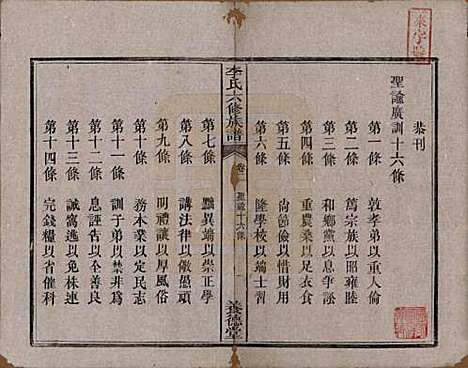 恭刊
聖諭廣訓十六條
第一條　敦孝弟以重人倫
第二條　篤宗族以昭雍睦
第三條　和鄉黨以息爭訟
第四條　重農桑以足衣食
第五條　尚節儉以惜財用
第六條　隆學校以端士習
李氏六修族譜
卷一
聖諭十六條
養德堂
第七條　黜異端以崇正學
第八條　講法律以儆愚頑
第九條　明禮讓以厚風俗
第十條　務本業以定民志
第十一條　訓子弟以禁非爲
第十二條　息誣告以全善良
第十三條　誡窩逃以免株連
第十四條　完錢糧以省催科